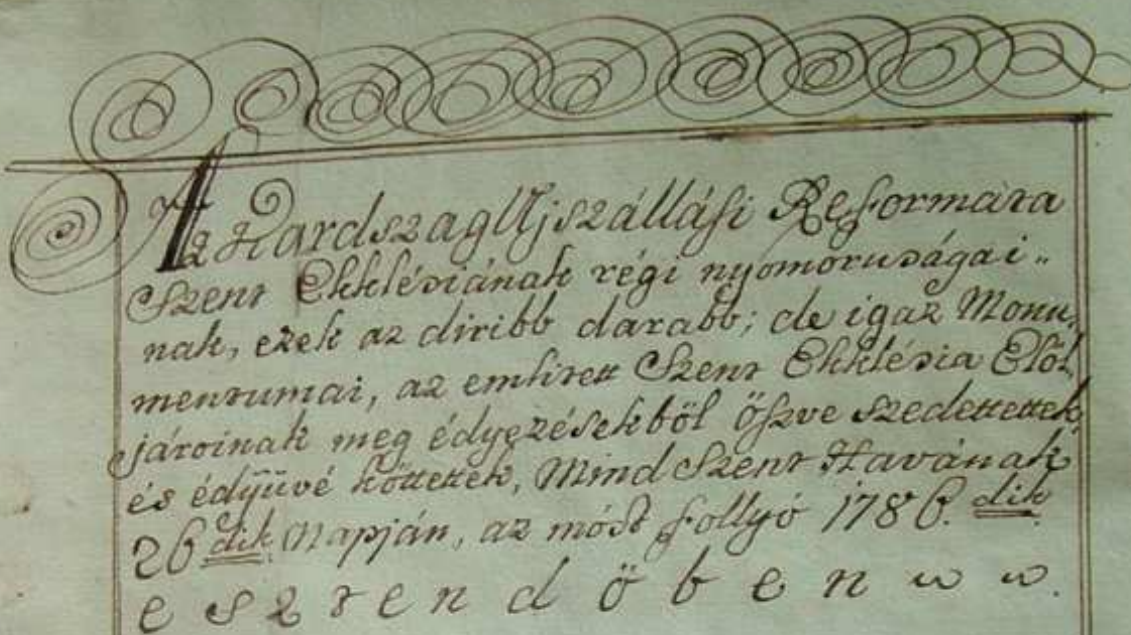 Az Kardszag Ujszállási Reformáta
Szent Ekklésiának régi nyomoruságai„
nak, ezek az diribb darabb; de igaz Monu,
mentumai, az emlitett Szent Ekklésia Elöl,
jároinak meg édyezésekböl öszve szedettettek,
és édjüvé köttettek, Mind Szent Havának
26dik Napján, az móst follyó 1786.dik
esztendöben